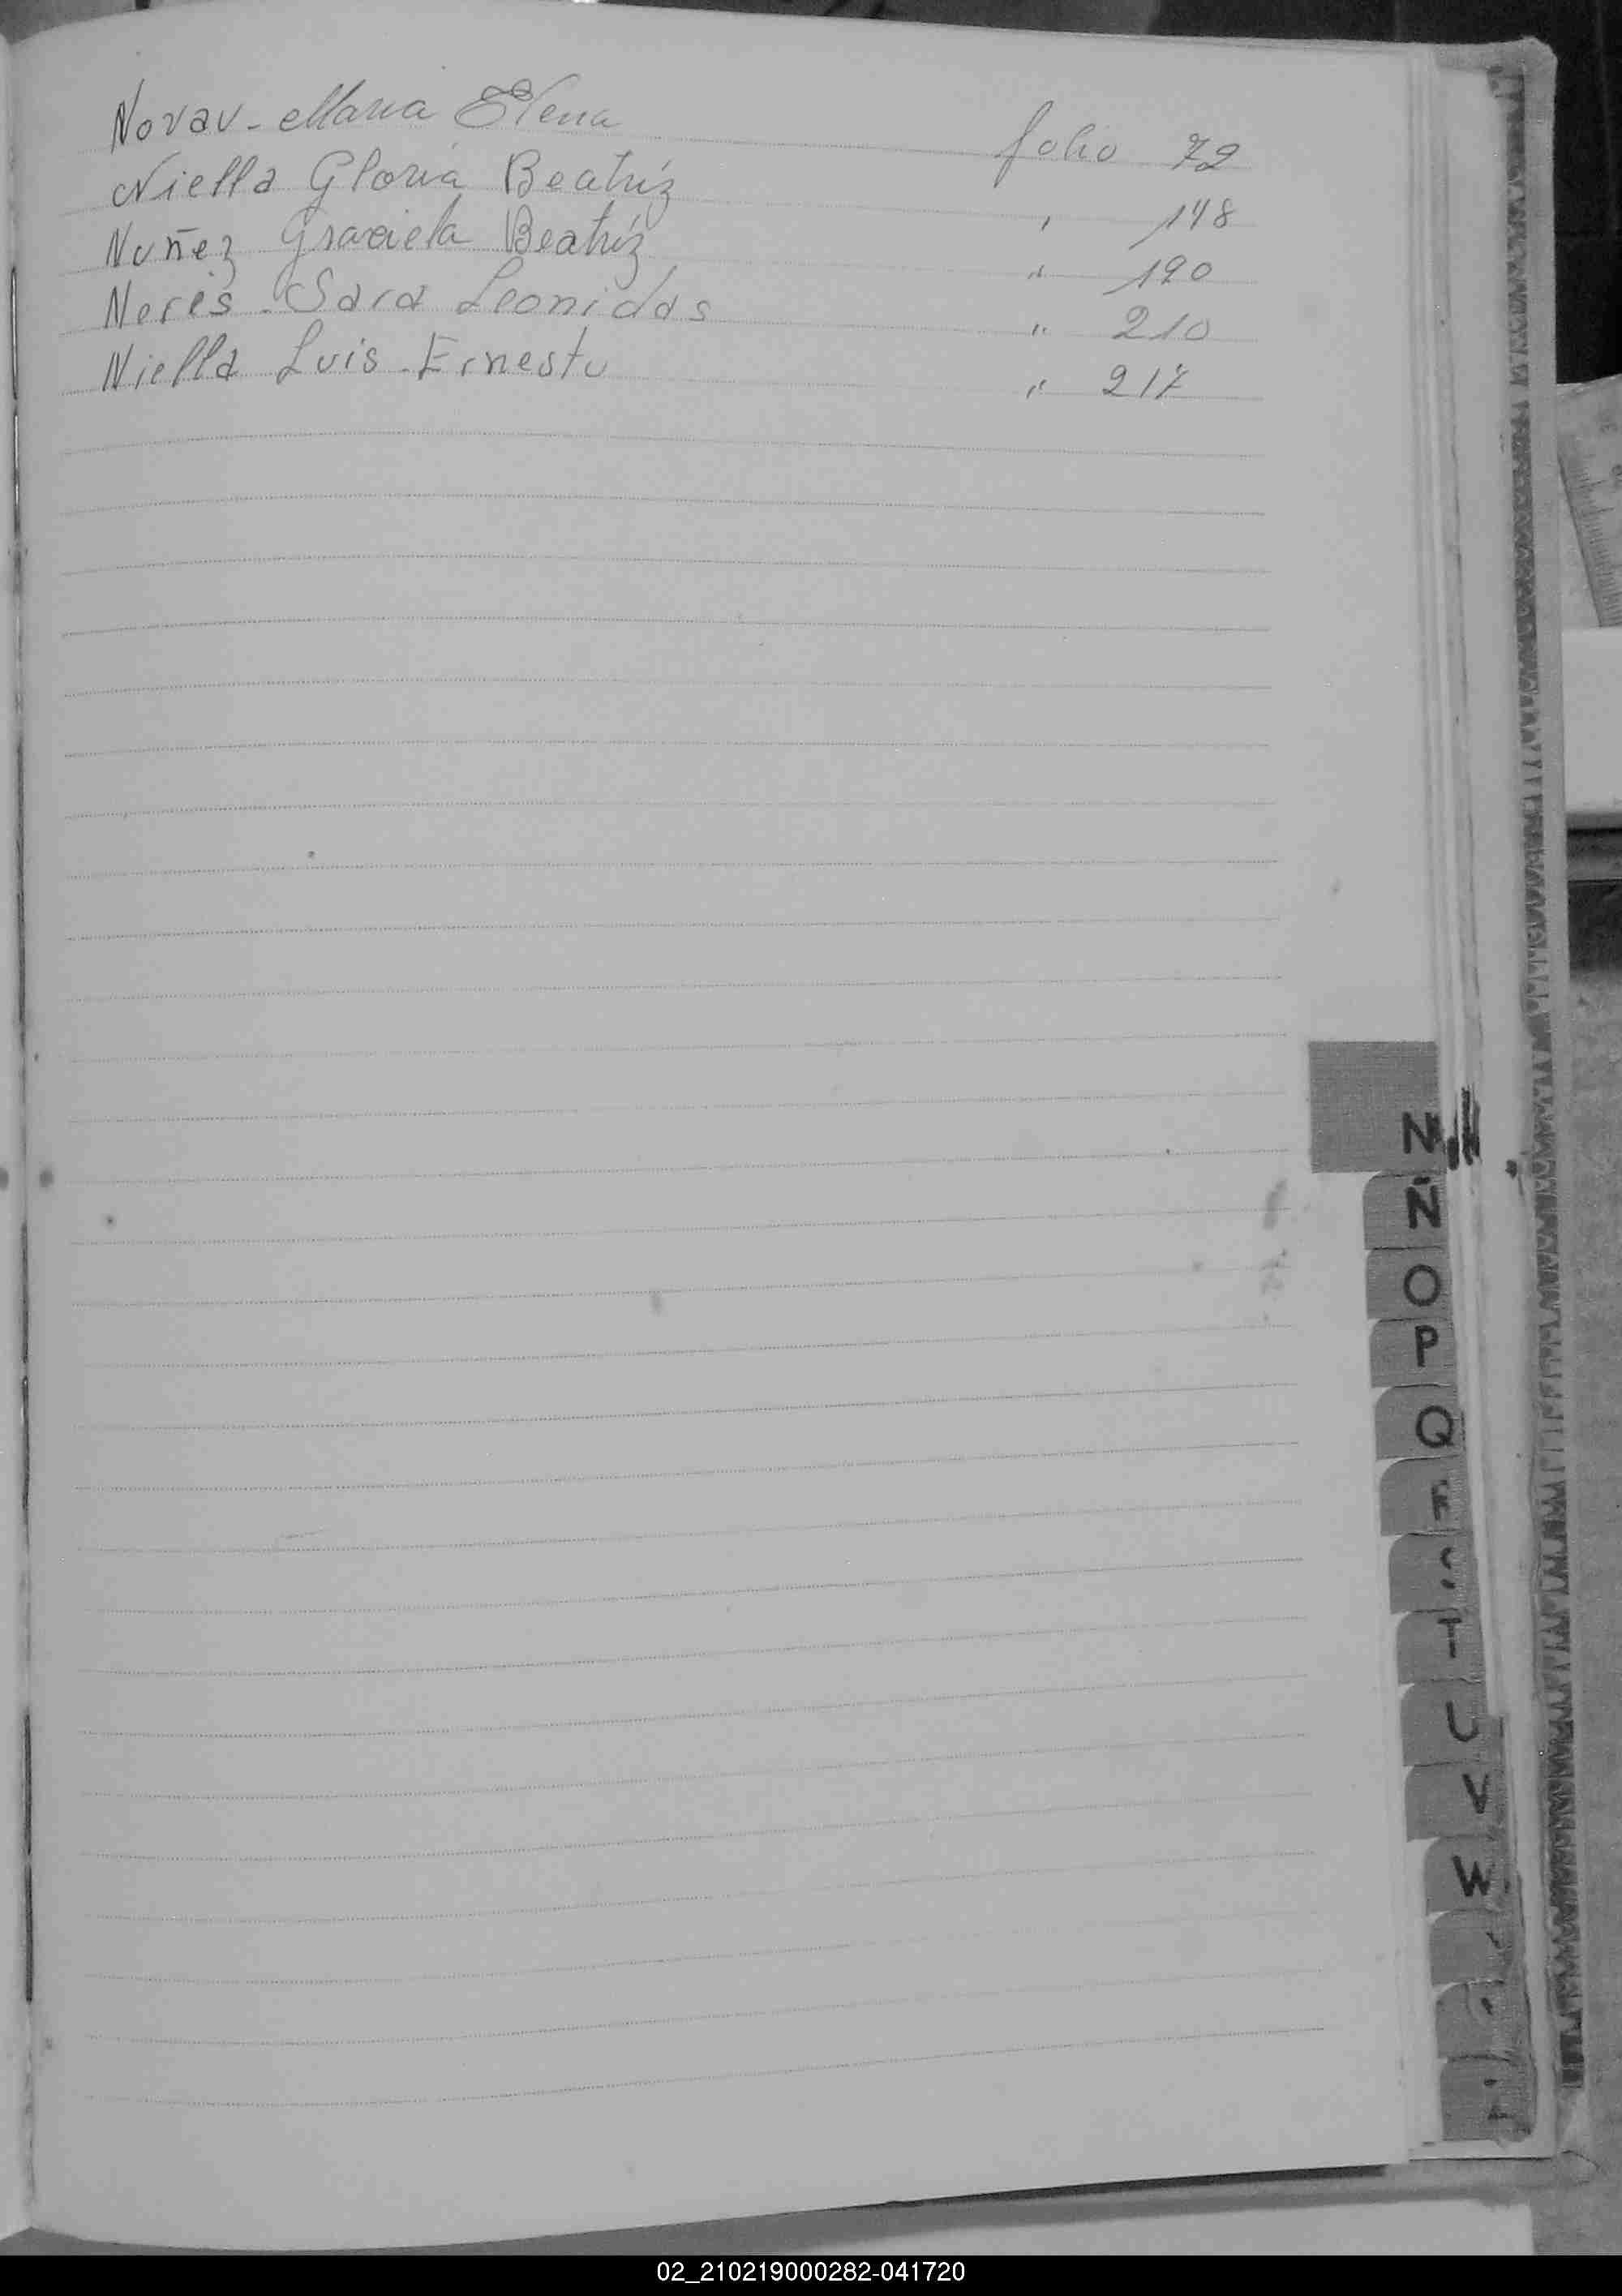 Novav - Maria Elena folio 72
Niella Gloria Beatriz " 148
Nuñez Graciela Beatriz " 190
Neris - Sara Leonidas " 210
Niella Luis - Ernesto " 217
N
Ñ
O
P
Q
R
S
T
U
V
W
02_210219000282-041720